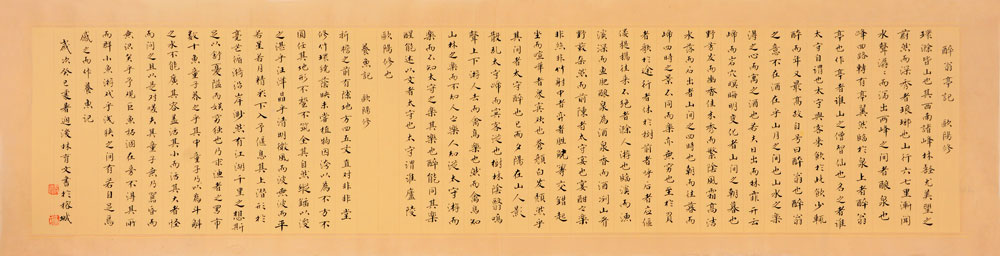 醉翁亭記 歐陽修
環滁皆山也其西南諸峰林壑尤美望之
蔚然而深秀者琅琊也山行六七里漸聞
水聲潺潺而瀉出兩峰之間者釀泉也
峰回路轉有亭翼然臨於泉上者醉翁
亭也作亭者誰山之僧智仙也名之者誰
太守自謂也太守與客來飲於此飲少輒
醉而年又最高故自號曰醉翁也醉翁
之意不在酒在乎山水之間也山水之樂
得之心而寓之酒也若夫日出而林霏開云
歸而岩穴暝晦明變化者山間之朝暮也
野芳發而幽香佳木秀而繁陰風霜高潔
水落而石出者山間之四時也朝而往暮而
歸四時之景不同而樂亦無窮也至於負
者歌於途行者休於樹前者呼後者應傴
僂提攜往來不絕者滁人游也臨溪而漁
溪深而魚肥釀泉為酒泉香而酒冽山肴
野蔌雜然而前陳者太守宴也宴酣之樂
非絲非竹射中者弈者勝觥籌交錯起
坐而喧嘩者眾賓歡也蒼顏白髮頹然乎
其間者太守醉也已而夕陽在山人影
散亂太守歸而賓客從也樹林陰翳鳴
聲上下游人去而禽鳥樂也然而禽鳥知
山林之樂而不知人之樂人知從太守游而
樂而不知太守之樂其樂也醉能同其樂
醒能述以文者太守也太守謂誰廬陵
歐陽修也
養魚記 歐陽修
折檐之前有隙地方四五丈直對非非堂
修竹環繞蔭映未嘗植物因洿以為不方不
圓任其地形不甃不築全其自然縱鍤以浚
之湛乎汪洋晶乎清明微風而波無波而平
若星若月精彩下入予偃息其上潛形於
毫芒循漪沿岸渺然有江湖千里之想斯
足以舒憂隘而娛窮獨也乃求漁者之罟市
數十魚童子養之乎其中童子乃以為斗斛
之水不能廣其容蓋活其小而棄其大者怪
而問之且以是對嗟夫其童子無乃嚚昏而
無識矣乎予觀巨魚枯涸在旁不得其所
而群小魚游戲乎淺狹之間有若自足焉
感之而作養魚記
歲次癸巳夏 林育文書於榕城